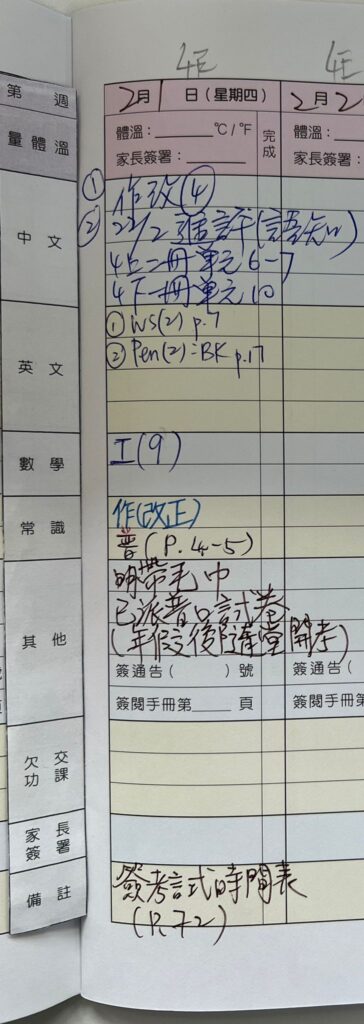 4E
4E
第 週
2月1日(星期四)
2月2
量體溫
體溫：______°C/°F
完成
體溫：
家長簽署：______
家長簽署
中文
① 作改(4)
② 22/2進評(語知)
4上二冊單元6-7
4下一冊單元10
英文
① WS(2) p.7
② Pen(2):BK p.17
數學
工(9)
常識
作(改正)
普(P.4-5)
其他
明帶毛巾
已派普口試卷
(年假後隨堂開考)
簽通告( )號
簽通告(
簽閱手冊第____頁
簽閱手冊
欠交功課
家長簽署
備註
簽考試時間表
(P.72)